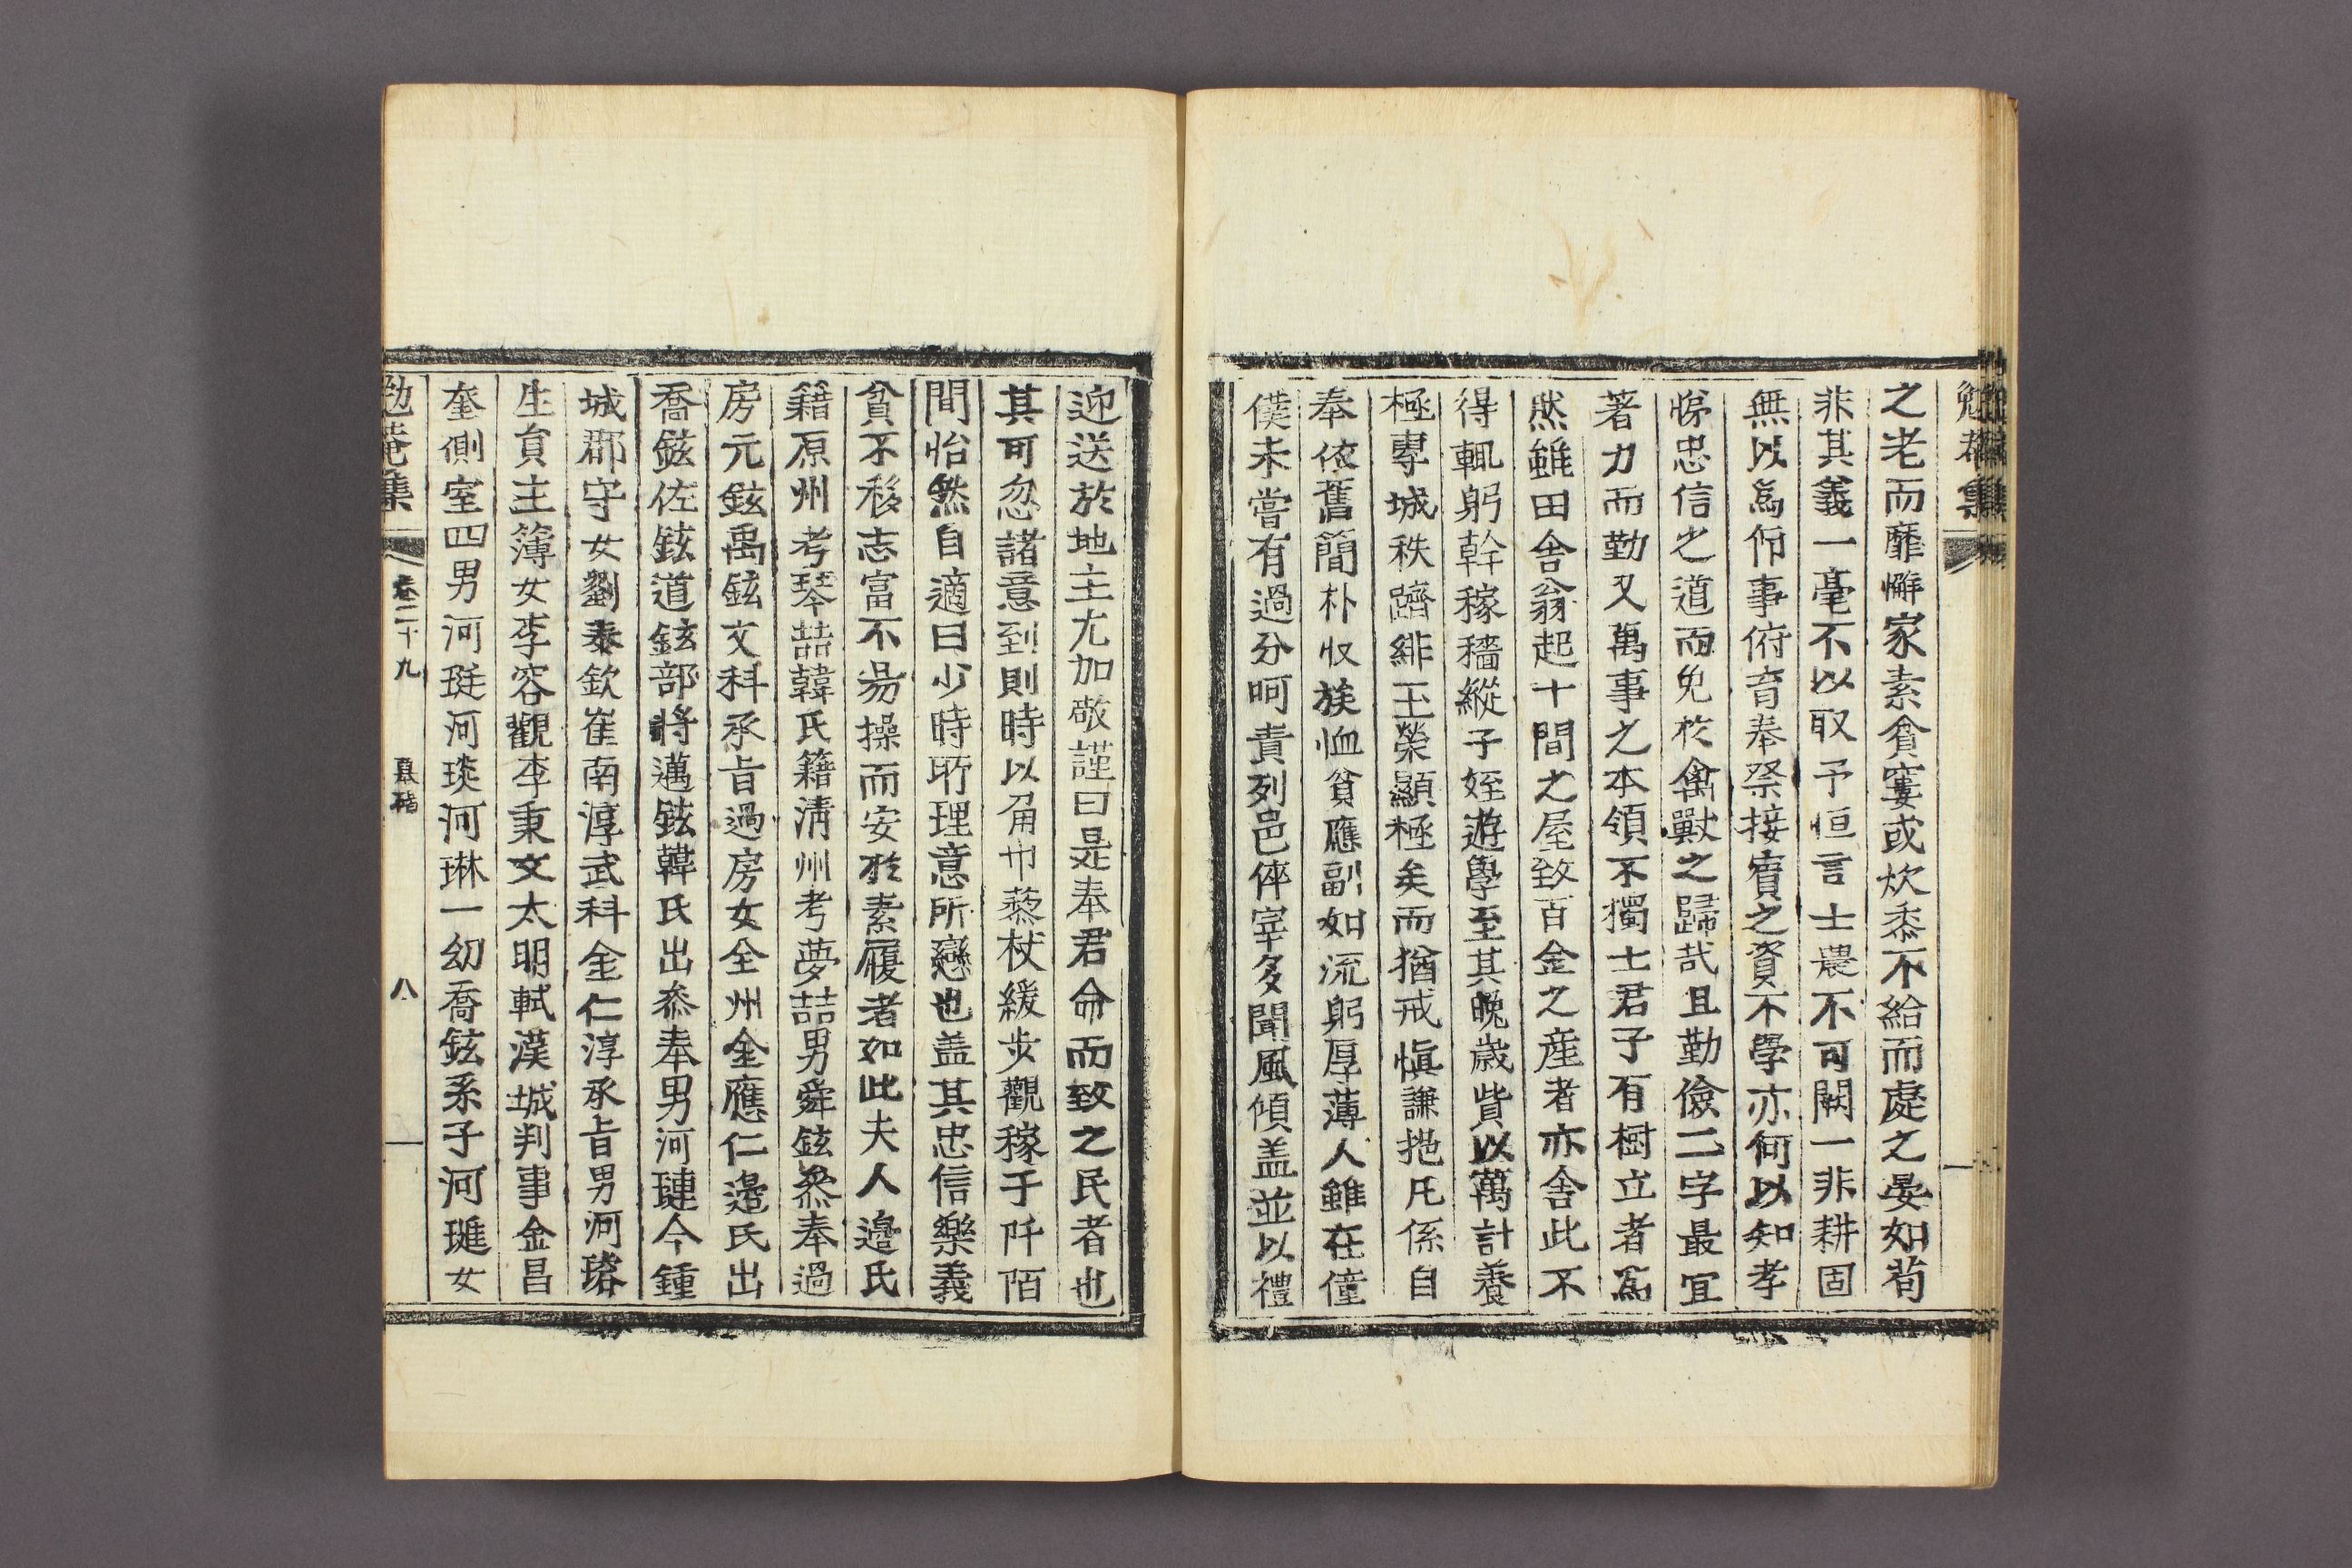 勉菴集
之老而靡懈家素貧窶或炊黍不給而處之晏如苟
非其義一毫不以取予恒言士農不可闕一非耕固
無以爲仰事俯育奉祭接賓之資不學亦何以知孝
悌忠信之道而免於禽獸之歸哉且勤儉二字最宜
著力而勤又萬事之本領不獨士君子有樹立者爲
然雖田舍翁起十間之屋致百金之産者亦舍此不
得輒躬幹稼穡縱子姪遊學至其晩歲貲以萬計養
極專城秩躋緋玉榮顯極矣而猶戒愼謙挹凡係自
奉依舊簡朴收族恤貧應副如流躬厚薄人雖在僮
僕未嘗有過分呵責列邑倅宰多聞風傾盖並以禮
迎送於地主尤加敬謹曰是奉君命而致之民者也
其可忽諸意到則時以角巾藜杖緩步觀稼于阡陌
間怡然自適曰少時所理意所戀也盖其忠信樂義
貧不移志富不易操而安於素履者如此夫人邊氏
籍原州考琴喆韓氏籍淸州考夢喆男舜鉉叅奉過
房元鉉禹鉉文科承旨過房女全州金應仁邊氏出
喬鉉佐鉉道鉉部將邁鉉韓氏出叅奉男河璉今鍾
城郡守女劉泰欽崔南淳武科金仁淳承旨男河璿
生員主簿女李容觀李秉文太明軾漢城判事金昌
奎側室四男河珽河琰河琳一幼喬鉉系子河璡女
勉菴集 卷二十九 墓碣 八